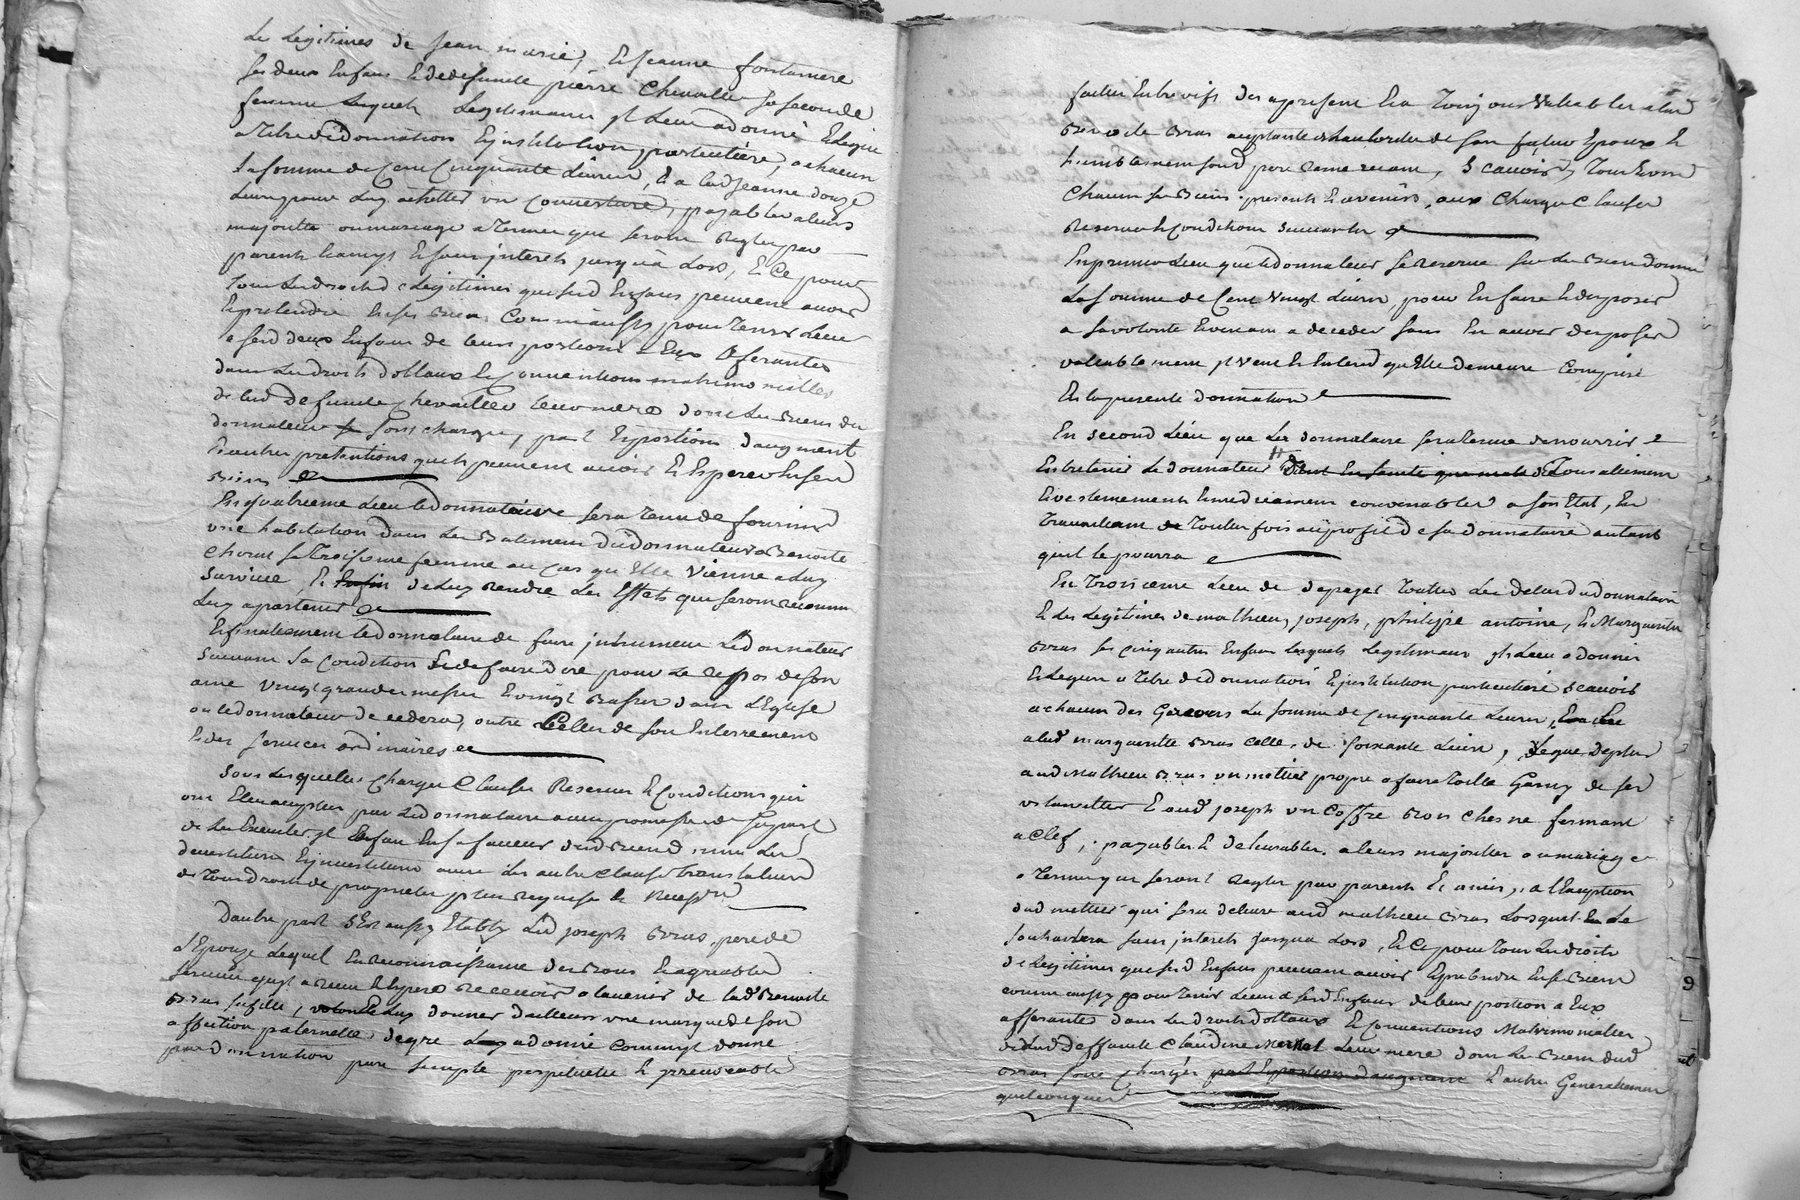 Le Legitimes de Jean marie, & Jeanne fontamere
ses deux Enfans & de defuncte pierre Chevallier sa seconde
femme Lesquels Legitimaux il Leur a donné & Legué
a titre de donnation & institution particuliere, a chacun
La somme de Cent Cinquante Livres, & a lad Jeanne douze
Livres pour Luy achetter un Couverture, payable a leurs
majoritte ou mariage a termes que seront Regler par
parents & amys & sans interets jusqu'a Lors, & Ce pour
tous Les droits de Legitimes que sesd Enfans peuvent avoir
& pretendre en ses biens Comme aussy pour tenir Lieu
a sesd deux Enfans de leurs portions a Eux aferantes
dans Les droits dottaux & Conventions matrimonialles
de lad defuncte Chevallier leur mere dont Les biens du
donnateur sont chargés, part & portions d'augment
& autres pretentions quils peuvent avoir & Esperer en sesd
biens
En quatrieme Lieu le donnataire sera tenu de fournir
une habitation dans Les Batiments du donnateur a Benoite
sa troisieme femme au cas qu'Elle Vienne a Luy
survivre, & Enfin de Luy rendre Les Effets que seront reconnu
Luy apartenir
& finalement le donnataire de faire inhumer Le donnateur
suivant sa Condition & de faire dire pour Le Repos de son
ame Vingt grandes messes & vingt basses dans L'Eglise
ou le donnateur decedera, outre Celles de son Enterrement
& des services ordinaires
Sous Lesquelles Charges Clauses Reserves & Conditions qui
ont Eté acceptées par Le donnataire avec promesse de sa part
de Les Executer, il
devestitures & investitures avec Les autres clauses translatives
de tous droits de proprieté plus requises &
Dautre part s'Est aussy Etably Led joseph bras, pere de
L'Epouze Lequel En reconnoissance des bons & agreables
services quil a receu & Espere recevoir a lavenir de lad Benoite
bras sa fille, voulant Luy donner d'ailleurs une marque de son
affection paternelle de gré Luy a donné Comme il donne
par donnation pure simple perpetuelle & irrevocable
faitte Entre vifs des apresent & a toujours Valable a lad
Benoite bras acceptante de Lauthorité de son futur Epoux &
humblement sond pere remerciant, Scavoir, tous & un
Chacun ses biens presents & avenirs, aux Charges Clauses
Reserves & Conditions suivantes
En premier Lieu que le donnateur se Reserve sur Les biens donnés
La somme de Cent Vingt Livres, pour En faire & disposer
a sa volonté & venant a deceder sans En avoir disposé
valablement il veut & Entend qu'Elle demeure Comprise
En la presente donnation
En second Lieu que Les donnataire sera tenue de nourrir &
Entretenir Le donnateur tant En santé que maladie de tous aliments
& vestements & medicaments convenables a son Etat, En
travaillant toutes fois au profit de sa donnataire autant
quil le pourra
En troisieme Lieu de de payer toutes Les dettes du donnateur
& Les Legitimes de mathieu, joseph, philippe antoine, & Marguerite
bras ses cinq autres Enfans Lesquels Legitimaux il Leur a donné
& Legué a titre de donnation & institution particuliere scavoir
a chacun des Garcons La somme de Cinquante Livres,
a lad marguerite bras celle de soixante Livres, Legue de plus
aud Mathieu bras un mettier propre a faire toille Garny de ses
& aud joseph un Coffre bois chesne fermant
a Clef, payables & delivrables a leurs majorittes ou mariage
a termes que seront Regler par parents & amis, a l'Exeption
dud mettier qui sera delivré aud mathieu bras Lorsquil Le
souhaitera sans interets jusqua Lors, & Ce pour tous Les droits
de Legitimes que sesd Enfans peuvent avoir & pretendre En ses biens
comme aussy pour tenir Lieu a sesd Enfans de leur portion a Eux
afferantes dans Les droits dottaux & Conventions Matrimonialles
de Lad deffuncte Claudine Merlat Leur mere dont Les biens dud
bras sont chargés part & portions daugment & autres Generallement
quelconques